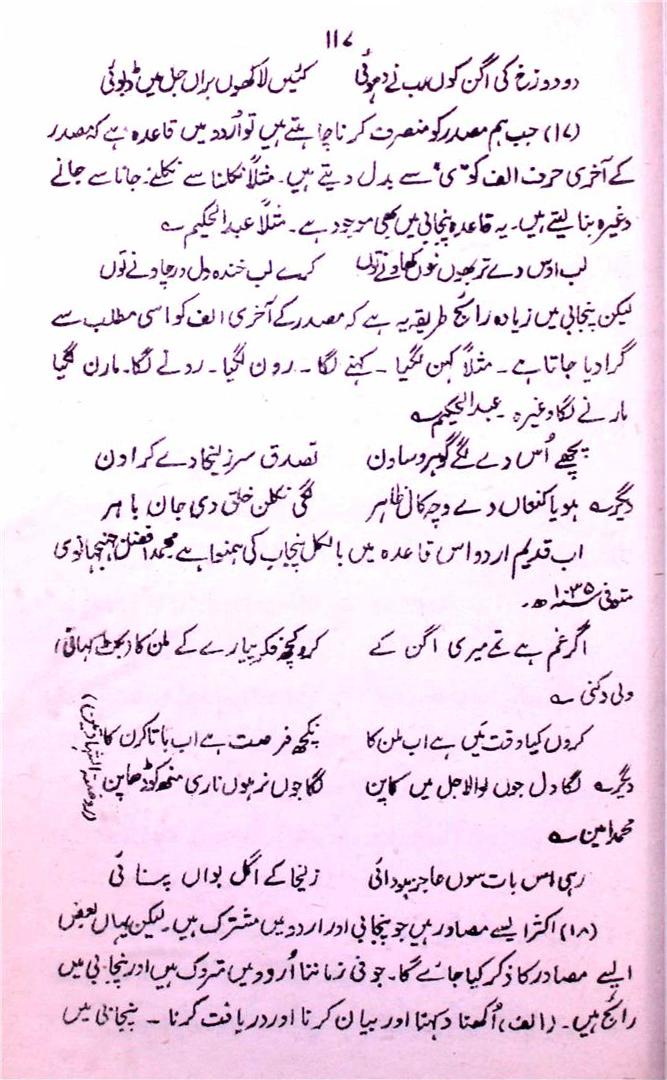 ۱۱۷
دو دوزخ کی اگن کوں سب نے دھوئی کئیں لاکھوں براں جل میں ڈبوئی
(۱۷) جب ہم مصدر کو منصرف کرنا چاہتے ہیں تو اُردو میں قاعدہ ہے کہ مصدر
کے آخری حرف الف کو "ی" سے بدل دیتے ہیں۔ مثلاً نکلنا سے نکلنے۔ جانا سے جانے
وغیرہ بنا لیتے ہیں۔ یہ قاعدہ پنجابی میں بھی موجود ہے۔ مثلاً عبدالحکیم ؎
لب اوس دے تربھیں نوں کھاونے توں کرے لب خندہ دل درجاونے توں
لیکن پنجابی میں زیادہ رائج طریقہ یہ ہے کہ مصدر کے آخری الف کو اسی مطلب سے
گرا دیا جاتا ہے۔ مثلاً کہن لگیا۔ کہنے لگا۔ رون لگیا۔ رونے لگا۔ مارن لگیا
مارنے لگا وغیرہ۔ عبدالحکیم ؎
پچھے اُس دے لگے گوہر وساون تصدق سر زلیخا دے کراون
دیگر ؎ ہویا کنعاں دے وچہ کال ظاہر لگی نکلن خلق دی جان باہر
اب قدیم اردو اس قاعدہ میں بالکل پنجاب کی ہمنوا ہے۔ محمد افضل جھنجھانوی
متوفی ۱۰۳۵ھ۔
اگر غم ہے تجے میری اگن کے کرو کچھ فکر پیارے کے ملن کا (بکٹ کہانی)
ولی دکنی ؎
کروں کیا وقت نئیں ہے اب ملن کا نکچھ فرصت ہے اب باتا کرن کا
(روضۃ الشہادتین)
دیگر ؎ لگا دل جوں لوا لا جل میں کاپن لگا جوں نر ہوں ناری منھ کو ڈھاپن
محمد امین ؎
رہی اس بات سوں عاجز ہو دائی زلیخا کے اگل بواں پسائی
(۱۸) اکثر ایسے مصادر ہیں جو پنجابی اور اردو میں مشترک ہیں۔ لیکن یہاں بعض
ایسے مصادر کا ذکر کیا جائے گا۔ جو فی زماننا اُردو میں متروک ہیں اور پنجابی میں
رائج ہیں۔ (الف) اُکھنا دہنا اور بیان کرنا اور دریافت کرنا۔ پنجابی میں